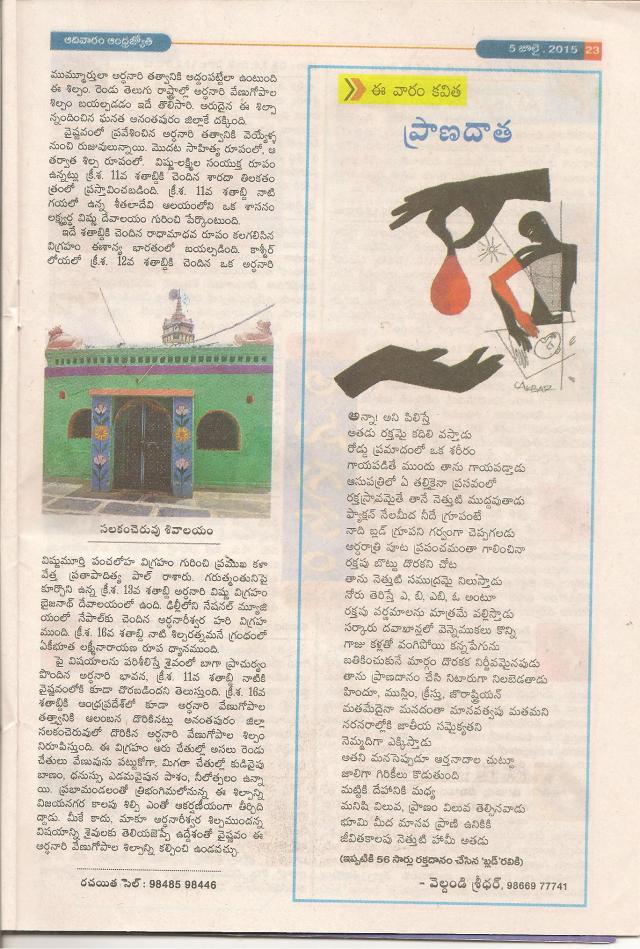 ఆదివారం ఆంధ్రజ్యోతి
5 జూలై, 2015 23
ముమ్మూర్తులా అర్ధనారి తత్వానికి అద్దంపట్టేలా ఉంటుంది
ఈ శిల్పం. రెండు తెలుగు రాష్ట్రాల్లో అర్ధనారి వేణుగోపాల
శిల్పం బయల్పడడం ఇదే తొలిసారి. అరుదైన ఈ శిల్పా
న్నందించిన ఘనత అనంతపురం జిల్లాకే దక్కింది.
వైష్ణవంలో ప్రవేశించిన అర్ధనారి తత్వానికి వెయ్యేళ్ళ
నుంచి రుజువులున్నాయి. మొదట సాహిత్య రూపంలో, ఆ
తర్వాత శిల్ప రూపంలో. విష్ణు-లక్ష్మిల సంయుక్త రూపం
ఉన్నట్లు క్రీ.శ. 11వ శతాబ్దికి చెందిన శారదా తిలకతం
త్రంలో ప్రస్తావించబడింది. క్రీ.శ. 11వ శతాబ్ది నాటి
గయలో ఉన్న శీతలాదేవి ఆలయంలోని ఒక శాసనం
లక్ష్మ్యర్ధ విష్ణు దేవాలయం గురించి పేర్కొంటుంది.
ఇదే శతాబ్దికి చెందిన రాధామాధవ రూపం కలగలిసిన
విగ్రహం ఈశాన్య భారతంలో బయల్పడింది. కాశ్మీర్
లోయలో క్రీ.శ. 12వ శతాబ్దికి చెందిన ఒక అర్ధనారి
సలకంచెరువు శివాలయం
విష్ణుమూర్తి పంచలోహ విగ్రహం గురించి ప్రముఖ కళా
వేత్త ప్రతాపాదిత్య పాల్ రాశారు. గరుత్మంతునిపై
కూర్చొని ఉన్న క్రీ.శ. 13వ శతాబ్ది అర్ధనారి విష్ణు విగ్రహం
బైజనాథ్ దేవాలయంలో ఉంది. ఢిల్లీలోని నేషనల్ మ్యూజి
యంలో నేపాల్‌కు చెందిన అర్ధనారీశ్వర హరి విగ్రహ
ముంది. క్రీ.శ. 16వ శతాబ్ది నాటి శిల్పరత్నమనే గ్రంథంలో
ఏకీభూత లక్ష్మీనారాయణ రూప ధ్యానముంది.
పై విషయాలను పరిశీలిస్తే శైవంలో బాగా ప్రాచుర్యం
పొందిన అర్ధనారి భావన, క్రీ.శ. 11వ శతాబ్ది నాటికి
వైష్ణవంలోకి కూడా చొరబడిందని తెలుస్తుంది. క్రీ.శ. 16వ
శతాబ్దికి ఆంధ్రప్రదేశ్‌లో కూడా అర్ధనారి వేణుగోపాల
తత్వానికి ఆలంబన దొరికినట్లు అనంతపురం జిల్లా
సలకంచెరువులో దొరికిన అర్ధనారి వేణుగోపాల శిల్పం
నిరూపిస్తుంది. ఈ విగ్రహం ఆరు చేతుల్లో అసలు రెండు
చేతులు వేణువును పట్టుకోగా, మిగతా చేతుల్లో కుడివైపు
బాణం, ధనుస్సు, ఎడమవైపున పాశం, నీలోత్పలం ఉన్నా
యి. ప్రభామండలంతో త్రిభంగిమలోనున్న ఈ శిల్పాన్ని
విజయనగర కాలపు శిల్పి ఎంతో ఆకర్షణీయంగా తీర్చిది
ద్దాడు. మీకే కాదు, మాకూ అర్ధనారీశ్వర శిల్పముందన్న
విషయాన్ని శైవులకు తెలియజెప్పే ఉద్దేశంతో వైష్ణవం ఈ
అర్ధనారి వేణుగోపాల శిల్పాన్ని కల్పించి ఉండవచ్చు.
రచయిత సెల్ : 98485 98446
ఈ వారం కవిత
ప్రాణదాత
అన్నా! అని పిలిస్తే
అతడు రక్తమై కదిలి వస్తాడు
రోడ్డు ప్రమాదంలో ఒక శరీరం
గాయపడితే ముందు తాను గాయపడ్తాడు
ఆసుపత్రిలో ఏ తల్లికైనా ప్రసవంలో
రక్తస్రావమైతే తానే నెత్తుటి ముద్దవుతాడు
ఫ్యాక్షన్ నేలమీద నీదే గ్రూపంటే
నాది బ్లడ్ గ్రూపని గర్వంగా చెప్పగలడు
అర్ధరాత్రి పూట ప్రపంచమంతా గాలించినా
రక్తపు బొట్టు దొరకని చోట
తాను నెత్తుటి సముద్రమై నిలుస్తాడు
నోరు తెరిస్తే ఎ, బి, ఎబి, ఓ అంటూ
రక్తపు వర్ణమాలను మాత్రమే వల్లిస్తాడు
సర్కారు దవాఖాన్లలో వెన్నెముకలు కొన్ని
గాజు కళ్లతో వంగిపోయి కన్నపేగును
బతికించుకునే మార్గం దొరకక నిర్జీవమైనపుడు
తాను ప్రాణదానం చేసి నిటారుగా నిలబెడతాడు
హిందూ, ముస్లిం, క్రీస్తు, జొరాష్ట్రియన్
మతమేదైనా మనదంతా మానవత్వపు మతమని
నరనరాల్లోకి జాతీయ సమైక్యతని
నెమ్మదిగా ఎక్కిస్తాడు
అతని మనసెప్పుడూ ఆర్తనాదాల చుట్టూ
జాలిగా గిరికీలు కొడుతుంది
మట్టికి దేహానికి మధ్య
మనిషి విలువ, ప్రాణం విలువ తెల్సినవాడు
భూమి మీద మానవ ప్రాణి ఉనికికి
జీవితకాలపు నెత్తుటి హామీ అతడు
(ఇప్పటికి 56 సార్లు రక్తదానం చేసిన 'బ్లడ్'రవికి)
- వెల్దండి శ్రీధర్, 98669 77741